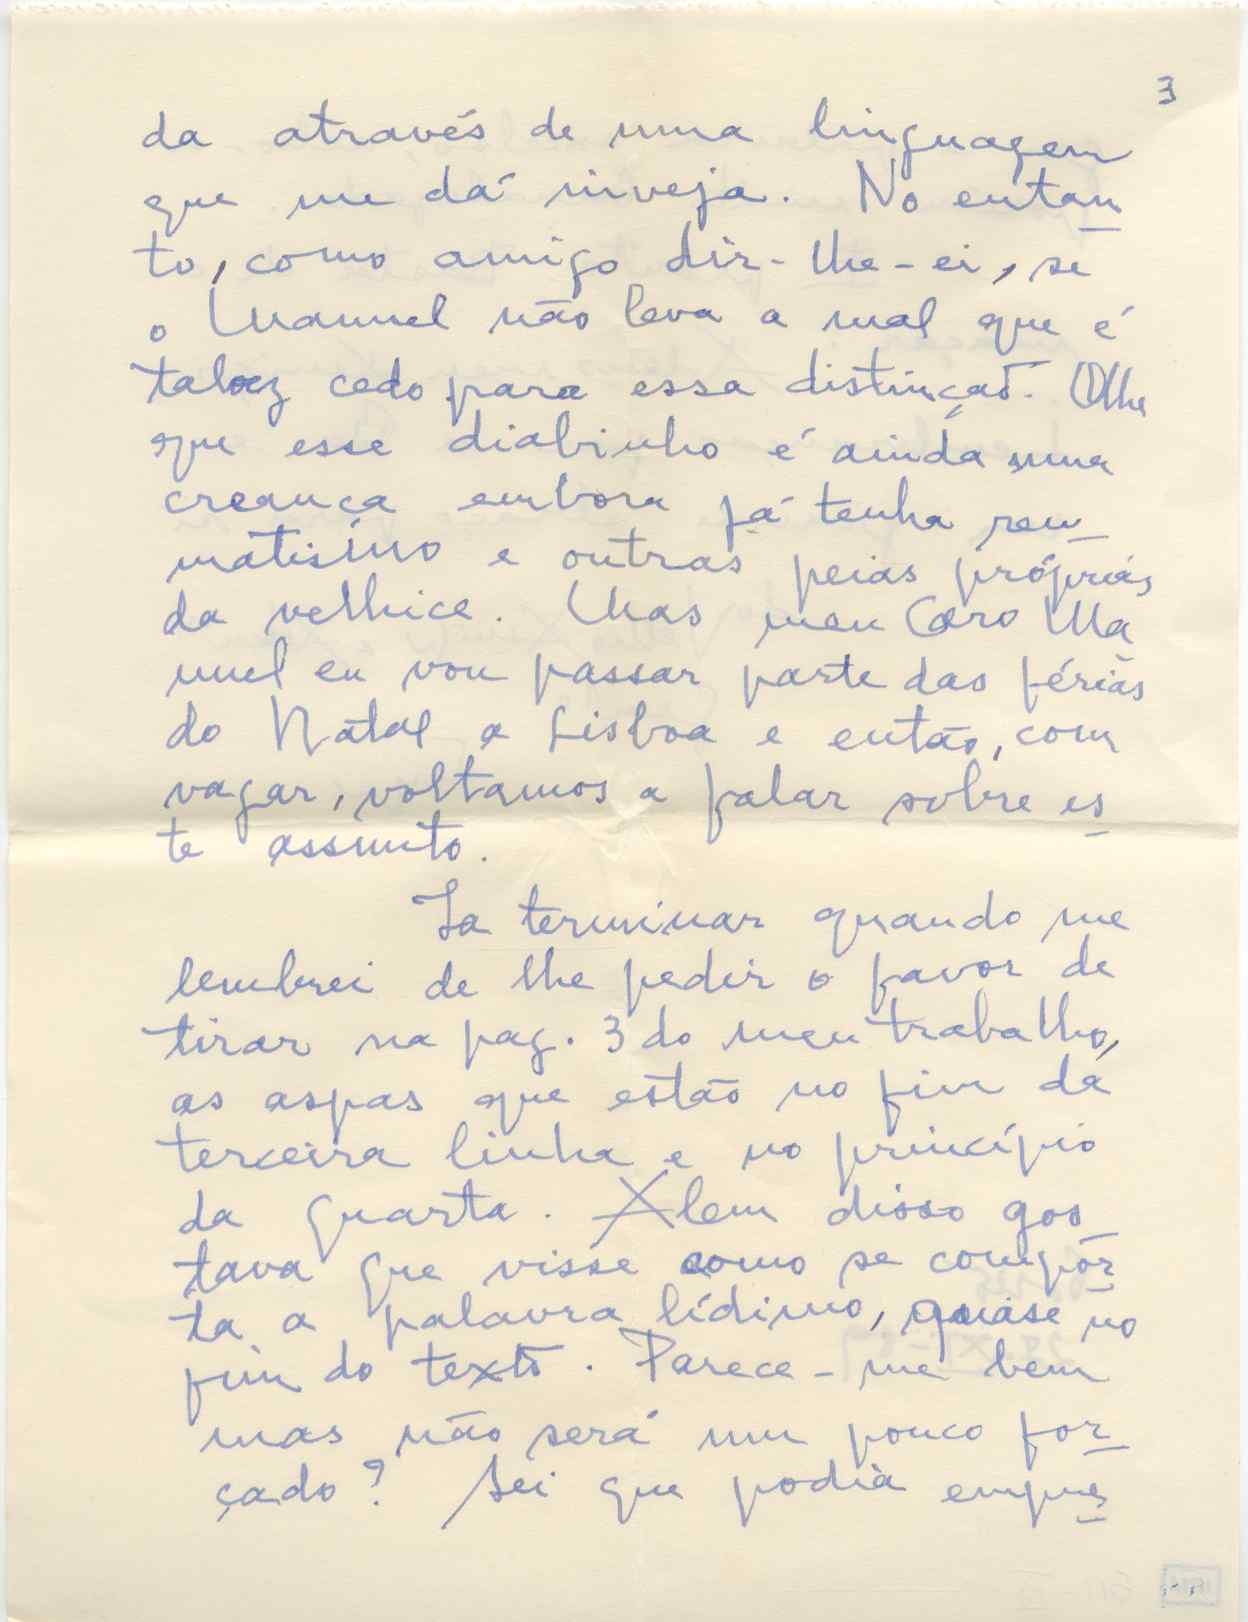 3
da através de uma linguagem
que me dá inveja. No entan
to, como amigo dir-lhe-ei, se
o Manuel não leva a mal que é
talvez cedo para essa distinção. Olhe
que esse diabinho é ainda uma
creança embora já tenha reu
matismo e outras peias próprias
da velhice. Mas meu Caro Ma
nuel eu vou passar parte das férias
do Natal a Lisboa e então, com
vagar, voltamos a falar sobre es
te assunto.
Ia terminar quando me
lembrei de lhe pedir o favor de
tirar na pag. 3 do meu trabalho,
as aspas que estão no fim da
terceira linha e no princípio
da quarta. Alem disso gos
tava que visse como se compor
ta a palavra lídimo, quase no
fim do texto. Parece-me bem
mas não será um pouco for
çado? Sei que podia empre